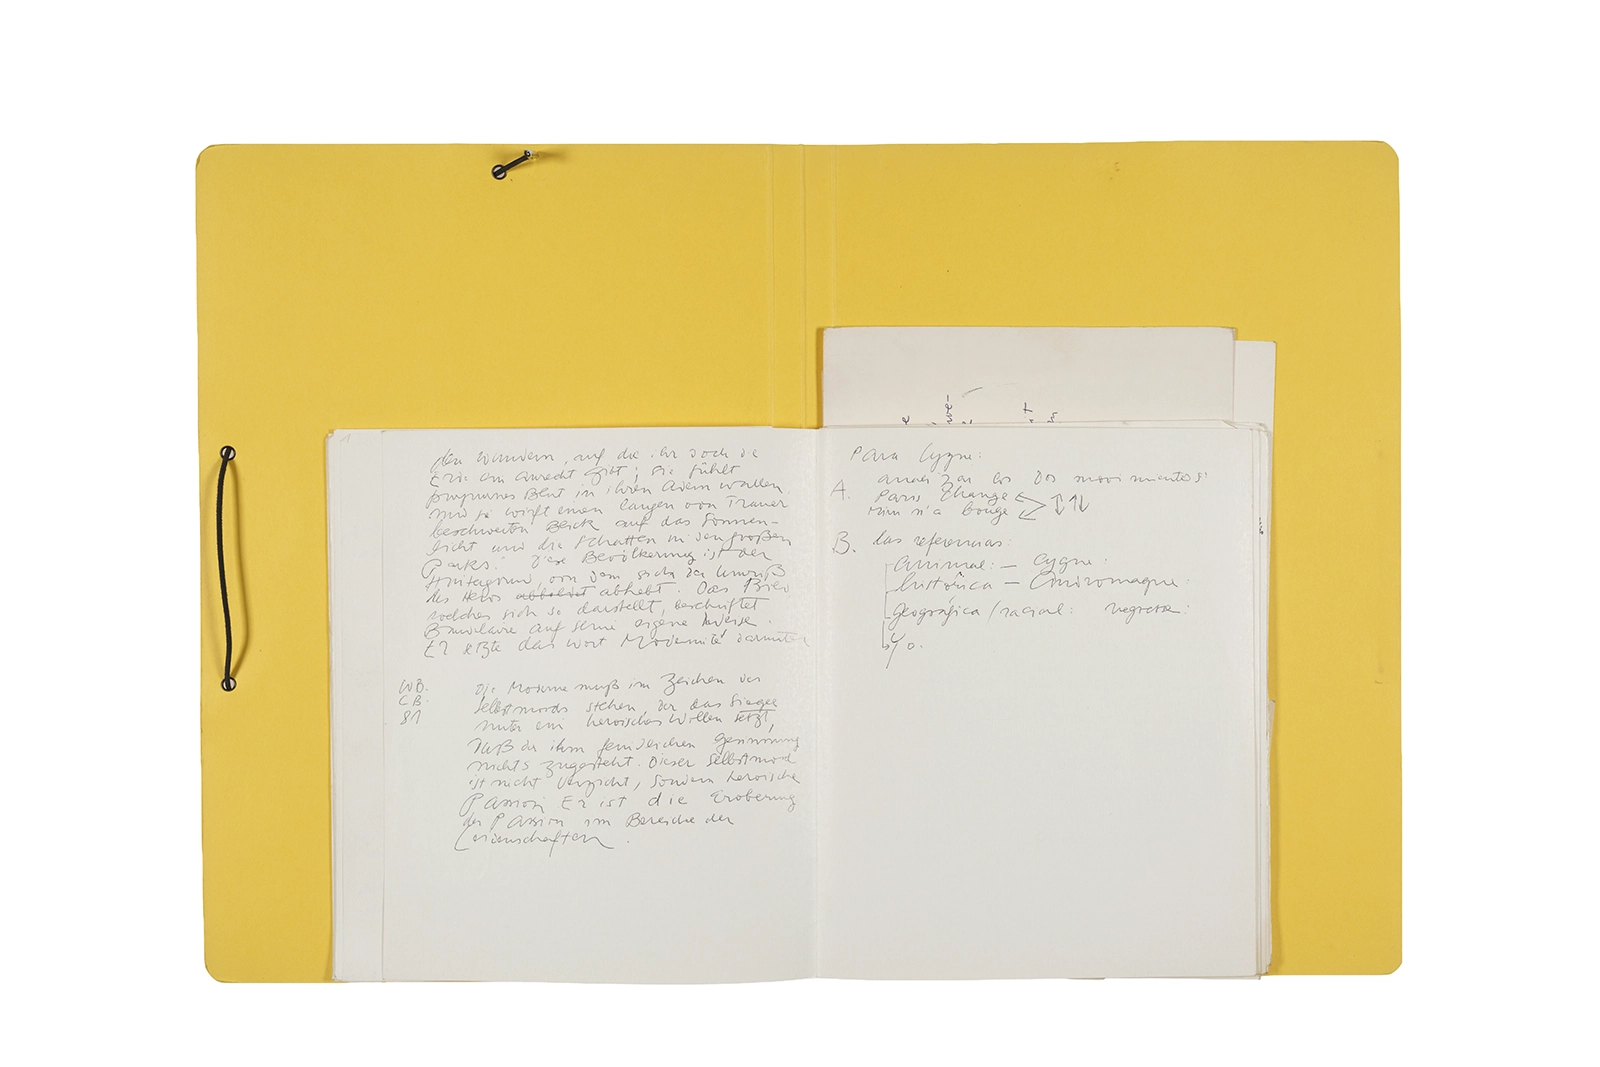 den Wundern, auf die ihr doch die
Erde ein Anrecht gibt; sie fühlt
purpurnes Blut in ihren Adern wallen,
und sie wirft einen langen von Trauer
beschwerten Blick auf das Sonnen-
licht und die Schatten in den großen
Parks. Diese Bevölkerung ist der
Hintergrund, von dem sich der Umriß
des Heros abbildet abhebt. Das Bild
welches sich so darstellt, beschriftet
Baudelaire auf seine eigene Weise.
Er setzte das Wort Modernité darunter
WB.
CB.
81
Die Moderne muß im Zeichen des
Selbstmords stehen, der das Siegel
unter ein heroisches Wollen setzt,
daß der ihm feindlichen Gesinnung
nichts zugesteht. Dieser Selbstmord
ist nicht Verzicht, sondern heroische
Passion. Er ist die Eroberung
der Passion im Bereiche der
Leidenschaften.
Para Cygne:
analizar los dos movimientos
A. Paris change
rien n'a bougé
B. las referencias:
animal: — cygne:
histórica — Andromaque:
geográfica / racial: negresse:
yo.